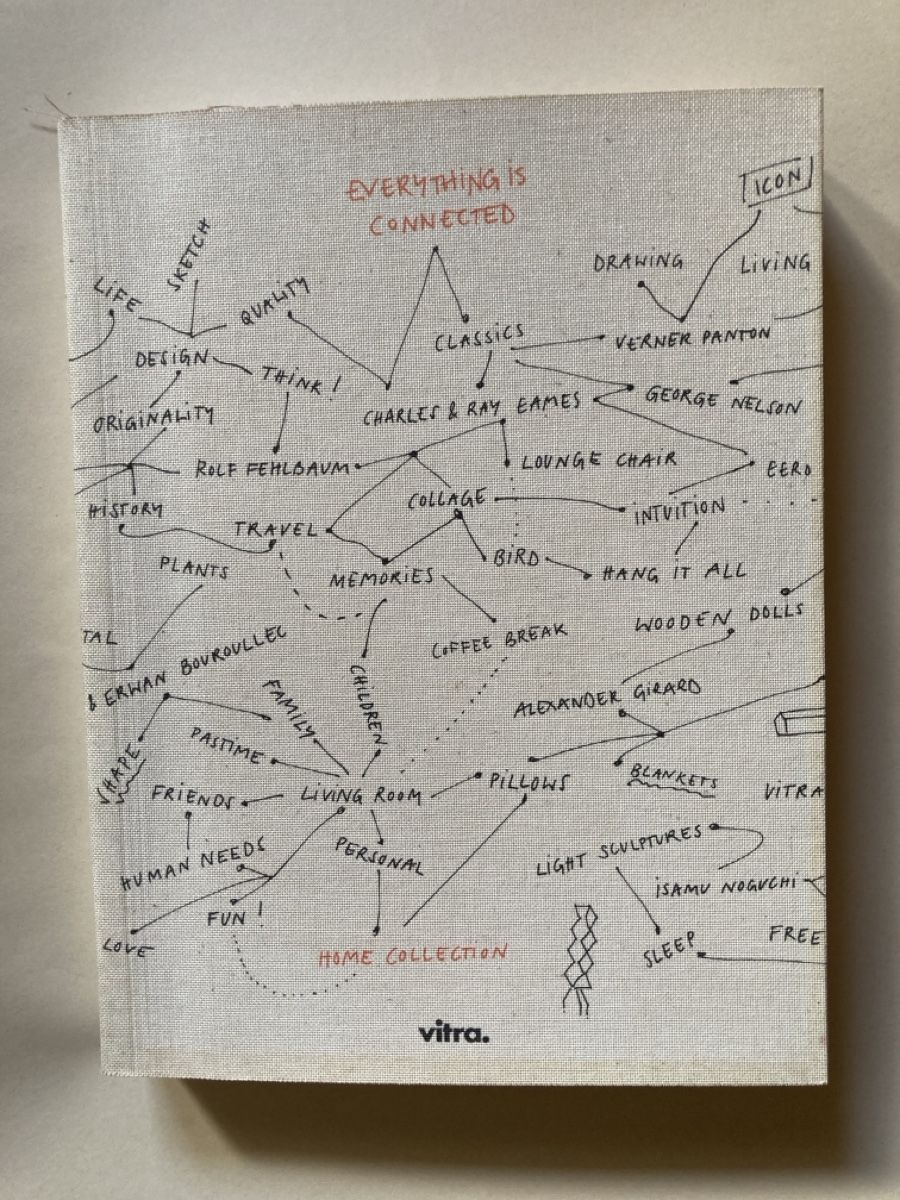 EVERYTHING IS
CONNECTED
ICON
SKETCH
DRAWING
LIVING
LIFE
QUALITY
CLASSICS
VERNER PANTON
DESIGN
THINK!
GEORGE NELSON
CHARLES & RAY EAMES
ORIGINALITY
ROLF FEHLBAUM
LOUNGE CHAIR
EERO
COLLAGE
HISTORY
INTUITION
TRAVEL
BIRD
HANG IT ALL
PLANTS
MEMORIES
WOODEN DOLLS
TAL
COFFEE BREAK
& ERWAN BOUROULLEC
CHILDREN
FAMILY
ALEXANDER GIRARD
PASTIME
SHAPE
PILLOWS
BLANKETS
FRIENDS
LIVING ROOM
VITRA
HUMAN NEEDS
PERSONAL
LIGHT SCULPTURES
ISAMU NOGUCHI
FUN!
LOVE
SLEEP
FREE
HOME COLLECTION
vitra.